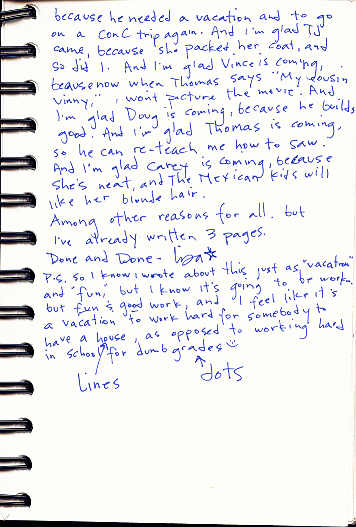 because he needed a vacation and to go
on a ConC trip again. And I'm glad TJ
came, because she packed her coat, and
so did I. And I'm glad Vince is coming,
because now when Thomas says "My cousin
Vinny," I won't picture the movie. And
I'm glad Doug is coming, because he builds
good. And I'm glad Thomas is coming,
so he can re-teach me how to saw.
And I'm glad Carey is coming, because
she's neat, and The Mexican kids will
like her blonde hair.
Among other reasons for all. but
I've already written 3 pages.
Done and Done - lipa
P.S. so I know I wrote about this just as "vacation"
and "fun," but I know it's going to be work.
but fun & good work, and I feel like it's
a vacation to work hard for somebody to
have a house, as opposed to working hard
in school for dumb grades
Lines
dots